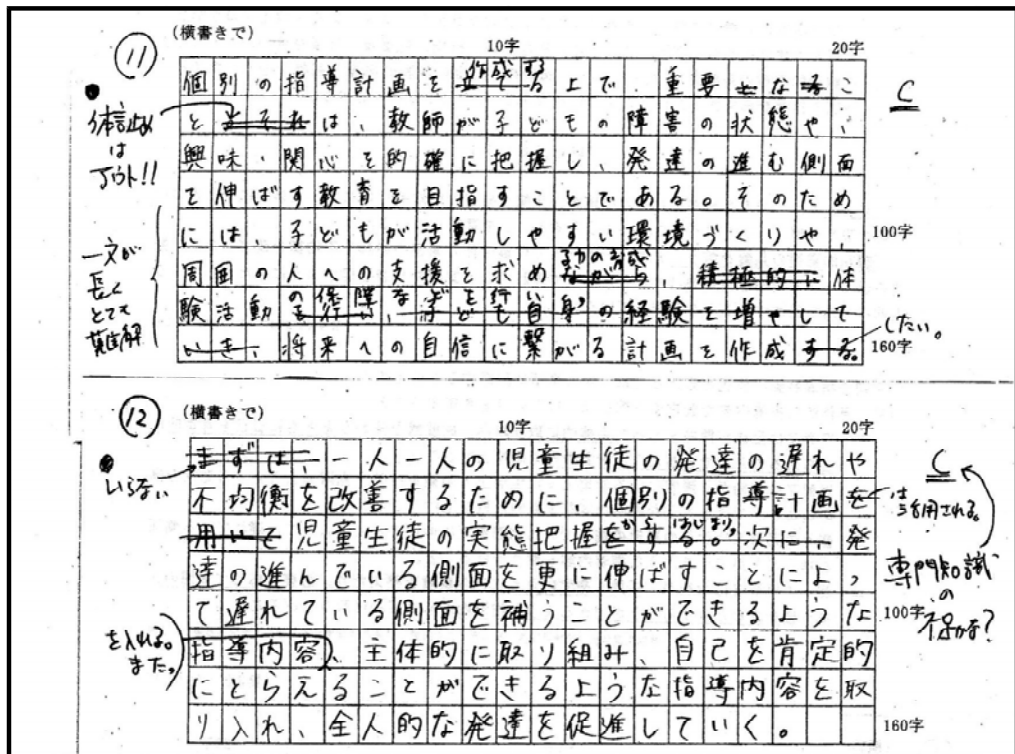 (横書きで)
10字
20字
11
個別の指導計画を作成する上で、重要となるこ
と とそれは、教師が子どもの障害の状態や、
興味・関心を的確に把握し、発達の進む側面
を伸ばす教育を目指すことである。そのため
には、子どもが活動しやすい環境づくりや、
100字
周囲の人への支援を求めながら、積極的に体
る力の育成
験活動を行い、子ども自身の経験を増やして
の保障などを行い
いき、将来への自信に繋がる計画を作成する。
160字
したい。
C
体言止め
は
アウト!!
一文が
長く
とても
難解
12
(横書きで)
10字
20字
まずは、一人一人の児童生徒の発達の遅れや
不均衡を改善するために、個別の指導計画を
用いて児童生徒の実態把握をする。次に、発
からはじまり、
達の進んでいる側面を更に伸ばすことによっ
て遅れている側面を補うことができるような
100字
指導内容、主体的に取り組み、自己を肯定的
にとらえることができるような指導内容を取
り入れ、全人的な発達を促進していく。
160字
いらない
を入れる。
また、
C
は
活用される。
専門知識
の
不足かな?